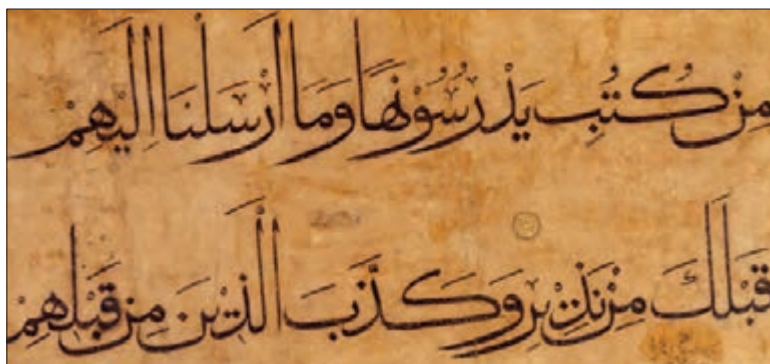 مِنْ كُتُبٍ يَدْرُسُوْنَهَا وَمَا اَرْسَلْنَا اِلَيْهِمْ
قَبْلَكَ مِنْ نَذِيْرٍ وَكَذَّبَ الَّذِيْنَ مِنْ قَبْلِهِمْ